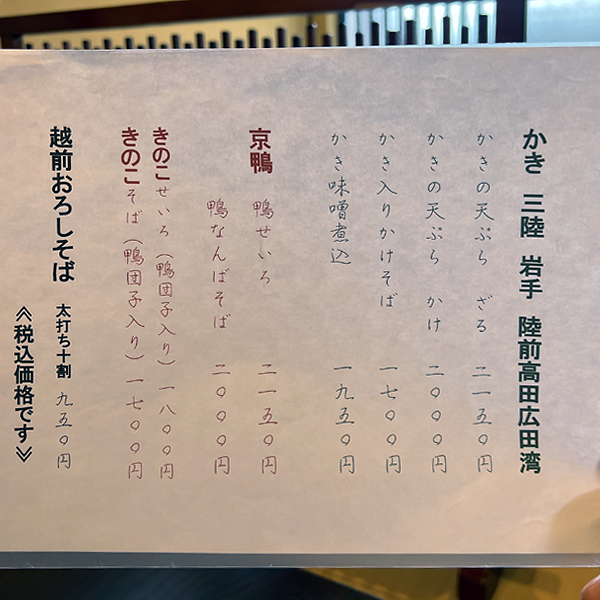 かき 三陸 岩手 陸前高田広田湾
かきの天ぷら ざる 二一五〇円
かきの天ぷら かけ 二〇〇〇円
かき入りかけそば 一七〇〇円
かき味噌煮込 一九五〇円
京鴨 鴨せいろ 二一五〇円
鴨なんばそば 二〇〇〇円
きのこせいろ(鴨団子入り)一八〇〇円
きのこそば(鴨団子入り)一七〇〇円
越前おろしそば 太打ち十割 九五〇円
≪税込価格です≫